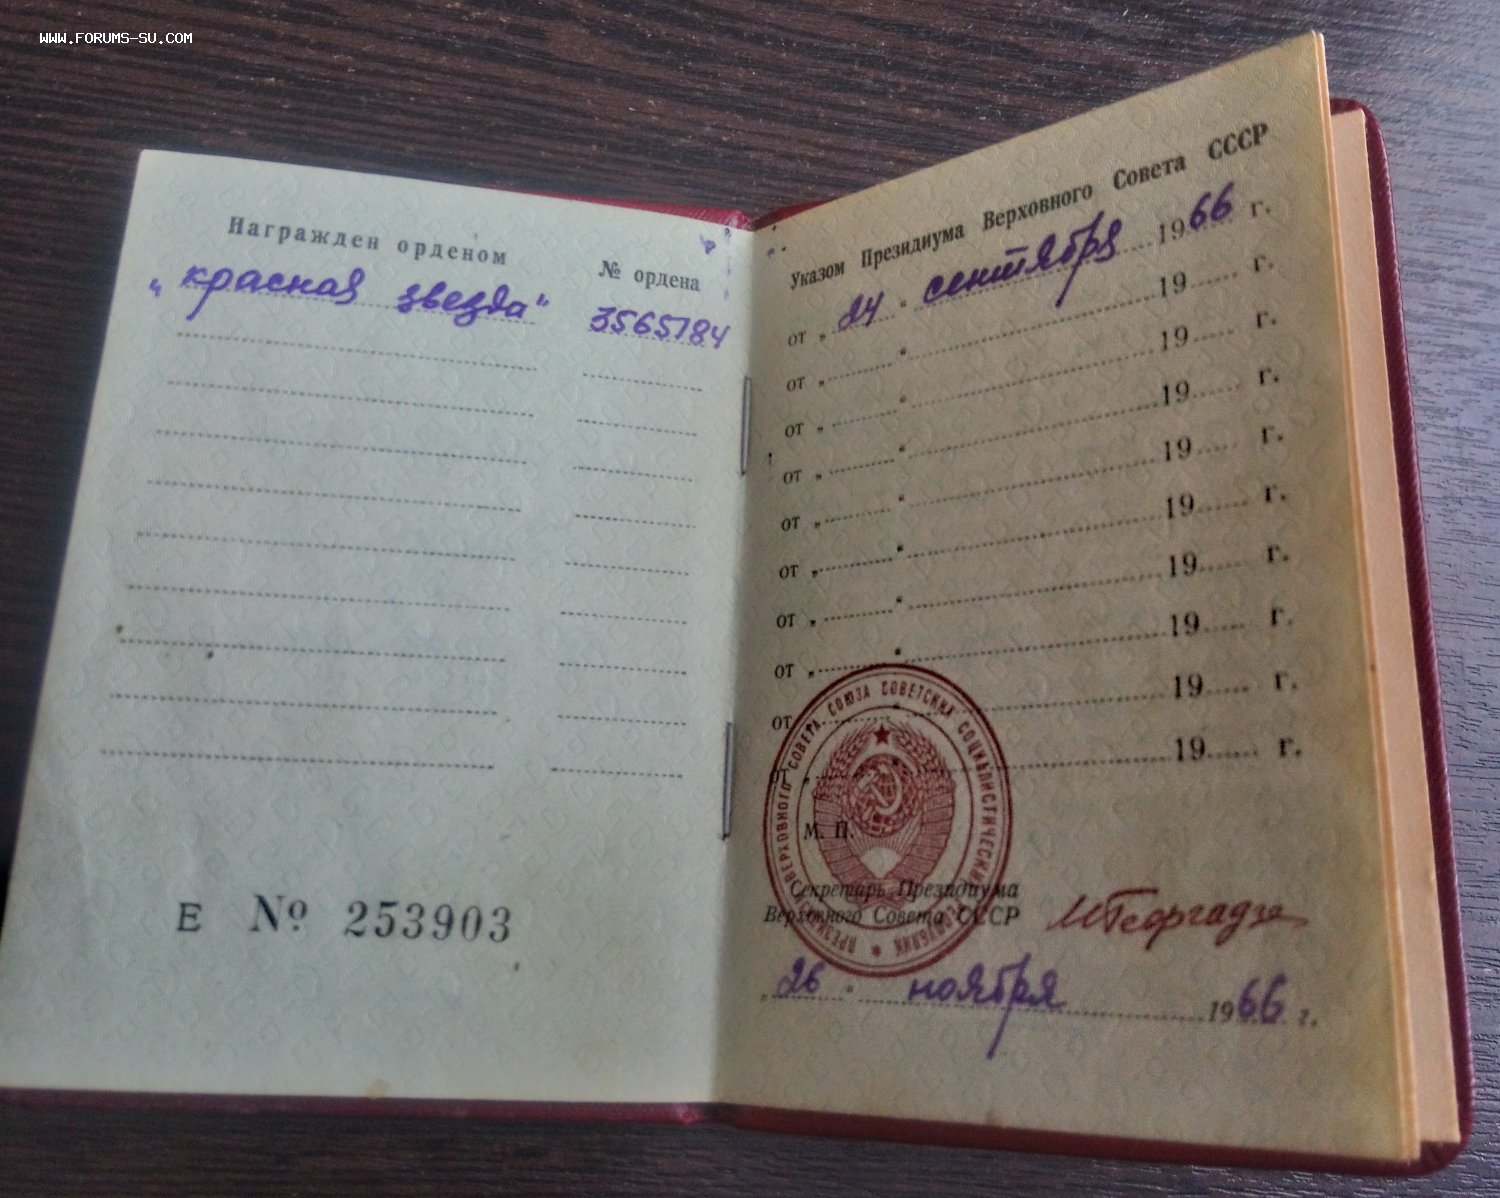 WWW.FORUMS-SU.COM
Награжден орденом
№ ордена
„красная звезда“ 3565784
Е № 253903
Указом Президиума Верховного Совета СССР
от „24“ сентября 1966 г.
от „ “ 19 г.
от „ “ 19 г.
от „ “ 19 г.
от „ “ 19 г.
от „ “ 19 г.
от „ “ 19 г.
от „ “ 19 г.
от „ “ 19 г.
от „ “ 19 г.
ПРЕЗИДИУМ ВЕРХОВНОГО СОВЕТА СОЮЗА СОВЕТСКИХ СОЦИАЛИСТИЧЕСКИХ РЕСПУБЛИК
М. П.
Секретарь Президиума
Верховного Совета СССР
МГеоргадзе
„26“ ноября 1966 г.